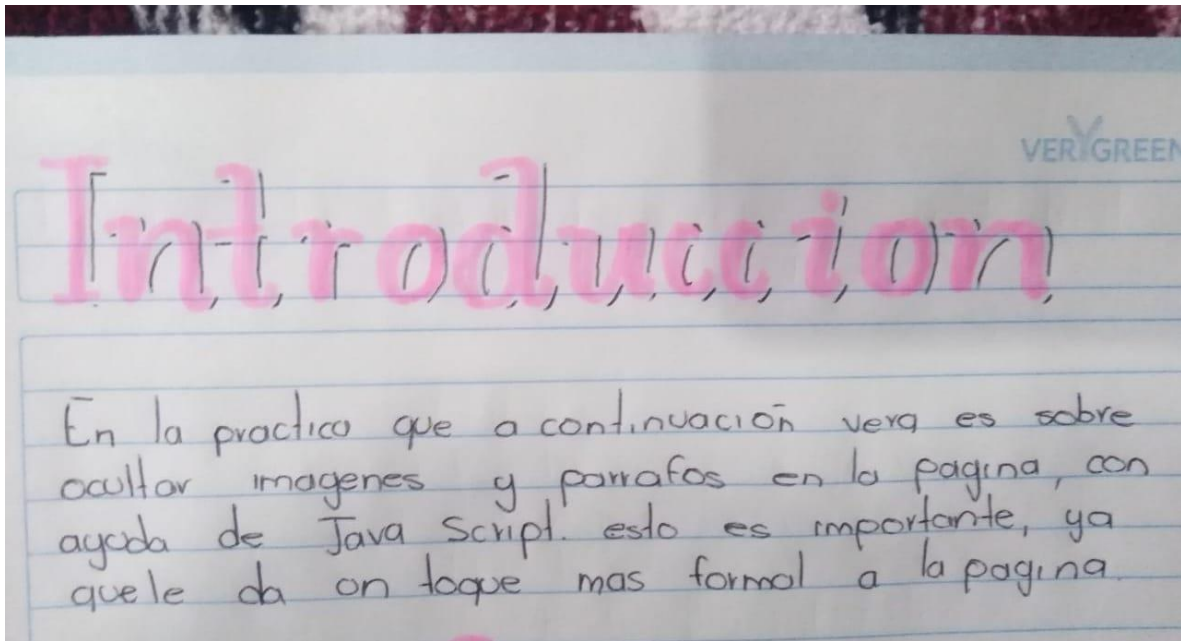 VERYGREEN
Introduccion
En la practica que a continuación vera es sobre
ocultar imagenes y parrafos en la pagina, con
ayuda de Java Script. esto es importante, ya
que le da un toque mas formal a la pagina.